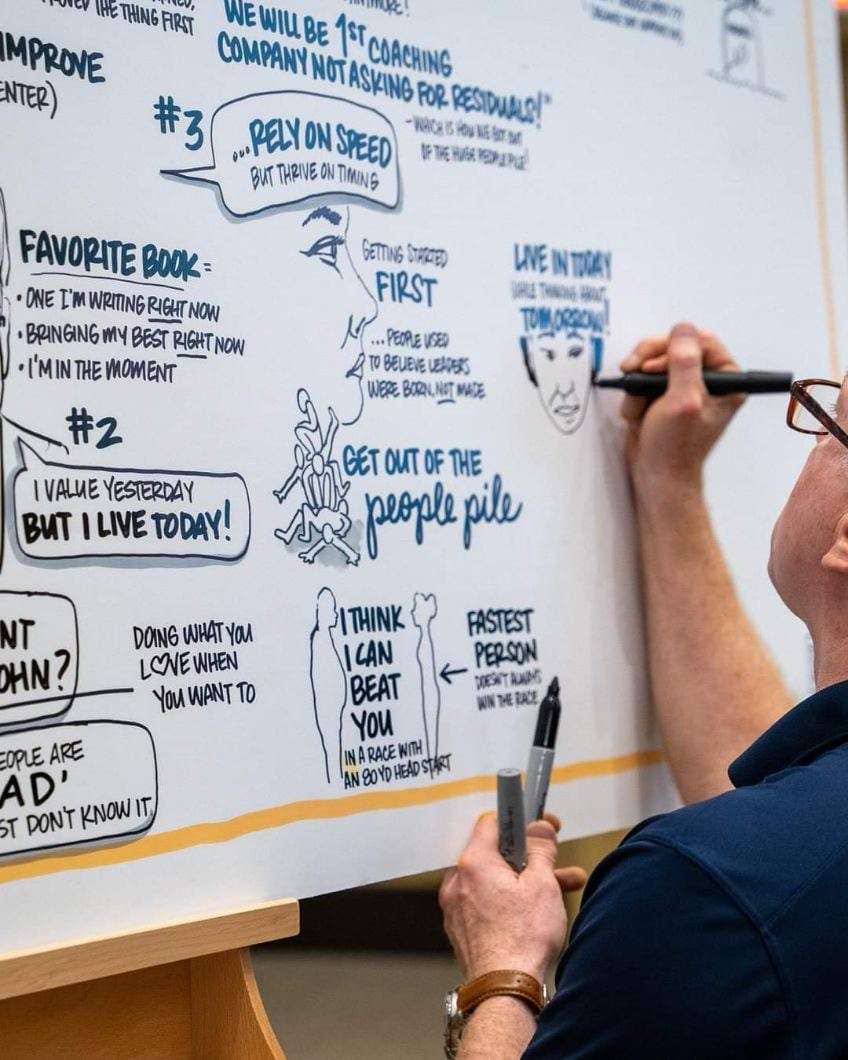 THE THING FIRST
IMPROVE
WE WILL BE 1ST COACHING
COMPANY NOT ASKING FOR RESIDUALS!"
- WHICH IS HOW WE GOT OUT
OF THE HUGE PEOPLE PILE!
#3
...RELY ON SPEED
BUT THRIVE ON TIMING
FAVORITE BOOK =
• ONE I'M WRITING RIGHT NOW
• BRINGING MY BEST RIGHT NOW
• I'M IN THE MOMENT
#2
I VALUE YESTERDAY
BUT I LIVE TODAY!
GETTING STARTED
FIRST
...PEOPLE USED
TO BELIEVE LEADERS
WERE BORN, NOT MADE
GET OUT OF THE
people pile
LIVE IN TODAY
WHILE THINKING ABOUT
TOMORROW!
OHN?
DOING WHAT YOU
LOVE WHEN
YOU WANT TO
I THINK
I CAN
BEAT
YOU
IN A RACE WITH
AN 80 YD HEAD START
FASTEST
PERSON
DOESN'T ALWAYS
WIN THE RACE
EOPLE ARE
AD'
ST DON'T KNOW IT